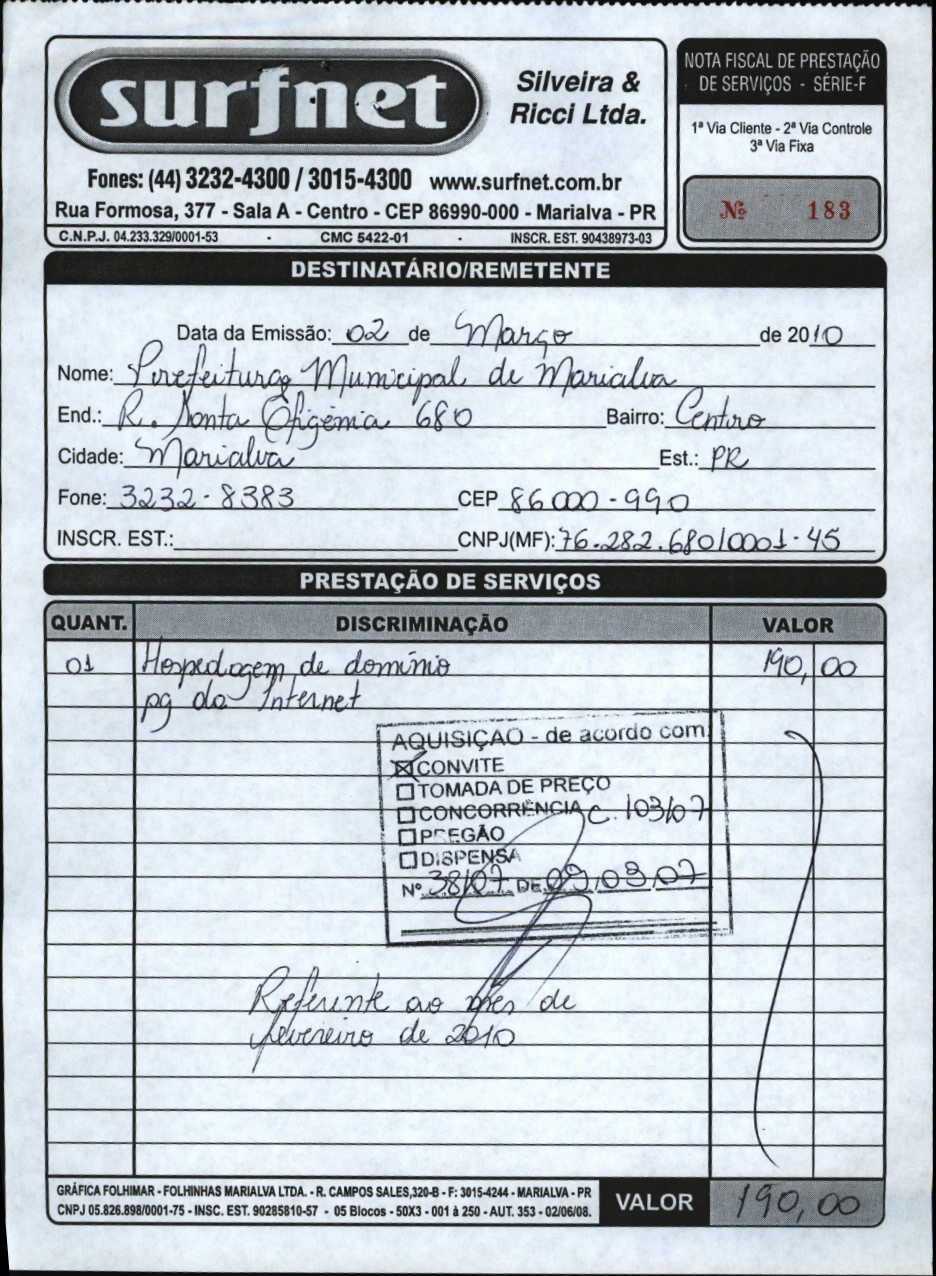 surfnet
Silveira &
Ricci Ltda.
Fones: (44) 3232-4300 / 3015-4300 www.surfnet.com.br
Rua Formosa, 377 - Sala A - Centro - CEP 86990-000 - Marialva - PR
C.N.P.J. 04.233.329/0001-53 - CMC 5422-01 - INSCR. EST. 90438973-03
NOTA FISCAL DE PRESTAÇÃO
DE SERVIÇOS - SÉRIE-F
1ª Via Cliente - 2ª Via Controle
3ª Via Fixa
Nº 183
DESTINATÁRIO/REMETENTE
Data da Emissão: 02 de Março de 2010
Nome: Prefeitura Municipal de Marialva
End.: R. Santa Efigênia 680 Bairro: Centro
Cidade: Marialva Est.: PR
Fone: 3232-8383 CEP 86000-990
INSCR. EST.: CNPJ(MF): 76.282.680/0001-45
PRESTAÇÃO DE SERVIÇOS
QUANT. DISCRIMINAÇÃO VALOR
01 Hospedagem de domínio 190,00
pg da Internet
AQUISIÇÃO - de acordo com
☒ CONVITE
☐ TOMADA DE PREÇO
☐ CONCORRÊNCIA C. 103/07
☐ PREGÃO
☐ DISPENSA
Nº 38/07 DE 09/03/07
Referente ao mês de
fevereiro de 2010
GRÁFICA FOLHIMAR - FOLHINHAS MARIALVA LTDA. - R. CAMPOS SALES,320-B - F: 3015-4244 - MARIALVA - PR
CNPJ 05.826.898/0001-75 - INSC. EST. 90285810-57 - 05 Blocos - 50X3 - 001 à 250 - AUT. 353 - 02/06/08.
VALOR 190,00